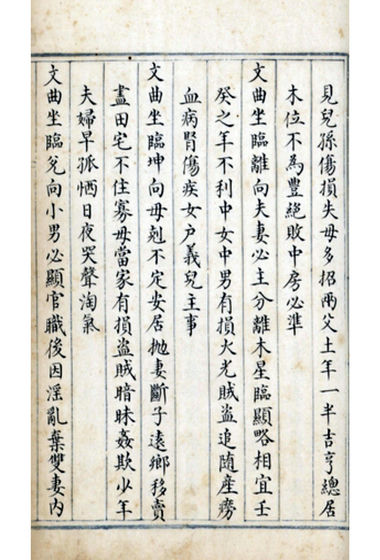 見兒孫傷損失母多招兩父土年一半吉亨總居
木位不為豐絕敗中房必準
文曲坐臨離向夫妻必主分離木星臨顯略相宜壬
癸之年不利中女中男有損火光賊盜追隨產癆
血病腎傷疾女户義兒主事
文曲坐臨坤向母剋不定安居拋妻斷子遠鄉移賣
盡田宅不住寡母當家有損盜賊暗昧姦欺少年
夫婦早孤恓日夜哭聲淘氣
文曲坐臨兌向小男必顯官職後因淫亂棄雙妻内